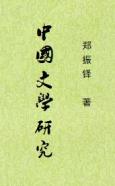 中國文學研究
郑振铎 著